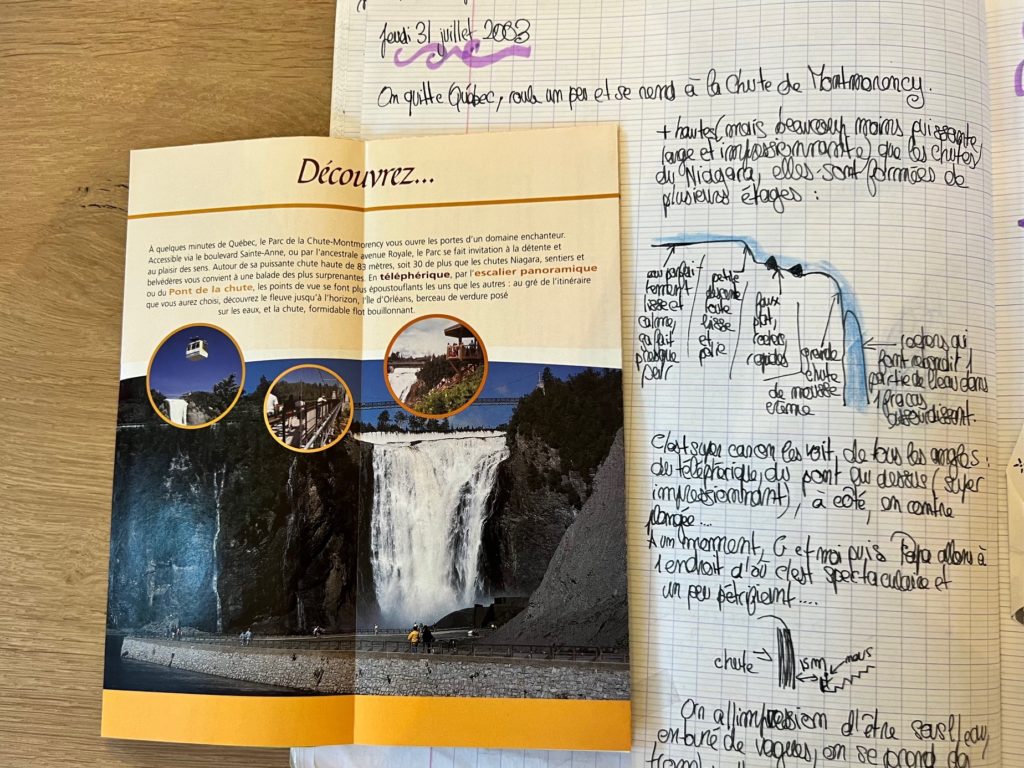 Jeudi 31 juillet 2003
On quitte Québec, roule un peu et se rend à la chute de Montmorency.
+ hautes (mais beaucoup moins puissante,
large et impressionnante) que les chutes
du Niagara, elles sont formées de
plusieurs étages :
eau parfaitement lisse et calme, ça fait presque peur
petite descente toute lisse et polie
faux plat, rochers, rapides
grande chute de mousse énorme
rochers qui
font rebondir 1
partie de l'eau dans
1 fracas
assourdissant.
C'est super car on les voit de tous les angles :
du téléphérique, du pont au dessus (super
impressionnant), à côté, en contre
plongée...
A un moment, C et moi puis Papa allons à
1 endroit d'où c'est spectaculaire et
un peu pétrifiant....
chute
15m
nous
On a l'impression d'être sous l'eau,
entouré de vagues, on se prend des
Découvrez...
À quelques minutes de Québec, le Parc de la Chute-Montmorency vous ouvre les portes d'un domaine enchanteur.
Accessible via le boulevard Sainte-Anne, ou par l'ancestrale avenue Royale, le Parc se fait invitation à la détente et
au plaisir des sens. Autour de sa puissante chute haute de 83 mètres, soit 30 de plus que les chutes Niagara, sentiers et
belvédères vous convient à une balade des plus surprenantes. En téléphérique, par l'escalier panoramique
ou du Pont de la chute, les points de vue se font plus époustouflants les uns que les autres : au gré de l'itinéraire
que vous aurez choisi, découvrez le fleuve jusqu'à l'horizon, l'île d'Orléans, berceau de verdure posé
sur les eaux, et la chute, formidable flot bouillonnant.